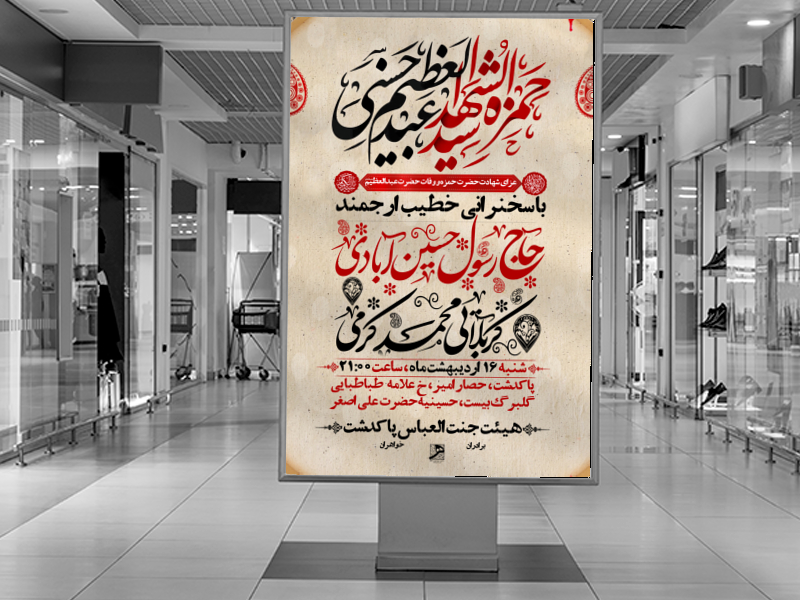 حمزه سیدالشهدا
عبدالعظیم حسنی
عزای شهادت حضرت حمزه و وفات حضرت عبدالعظیم
باسخنرانی خطیب ارجمند
حاج رسول حسین آبادی
کربلائی محمد کرمی
شنبه ۱۶ اردیبهشت ماه، ساعت ۲۱:۰۰
پاکدشت، حصارامیر، خ علامه طباطبایی
گلبرگ بیست، حسینیه حضرت علی اصغر
هیئت جنت العباس پاکدشت
برادران خواهران